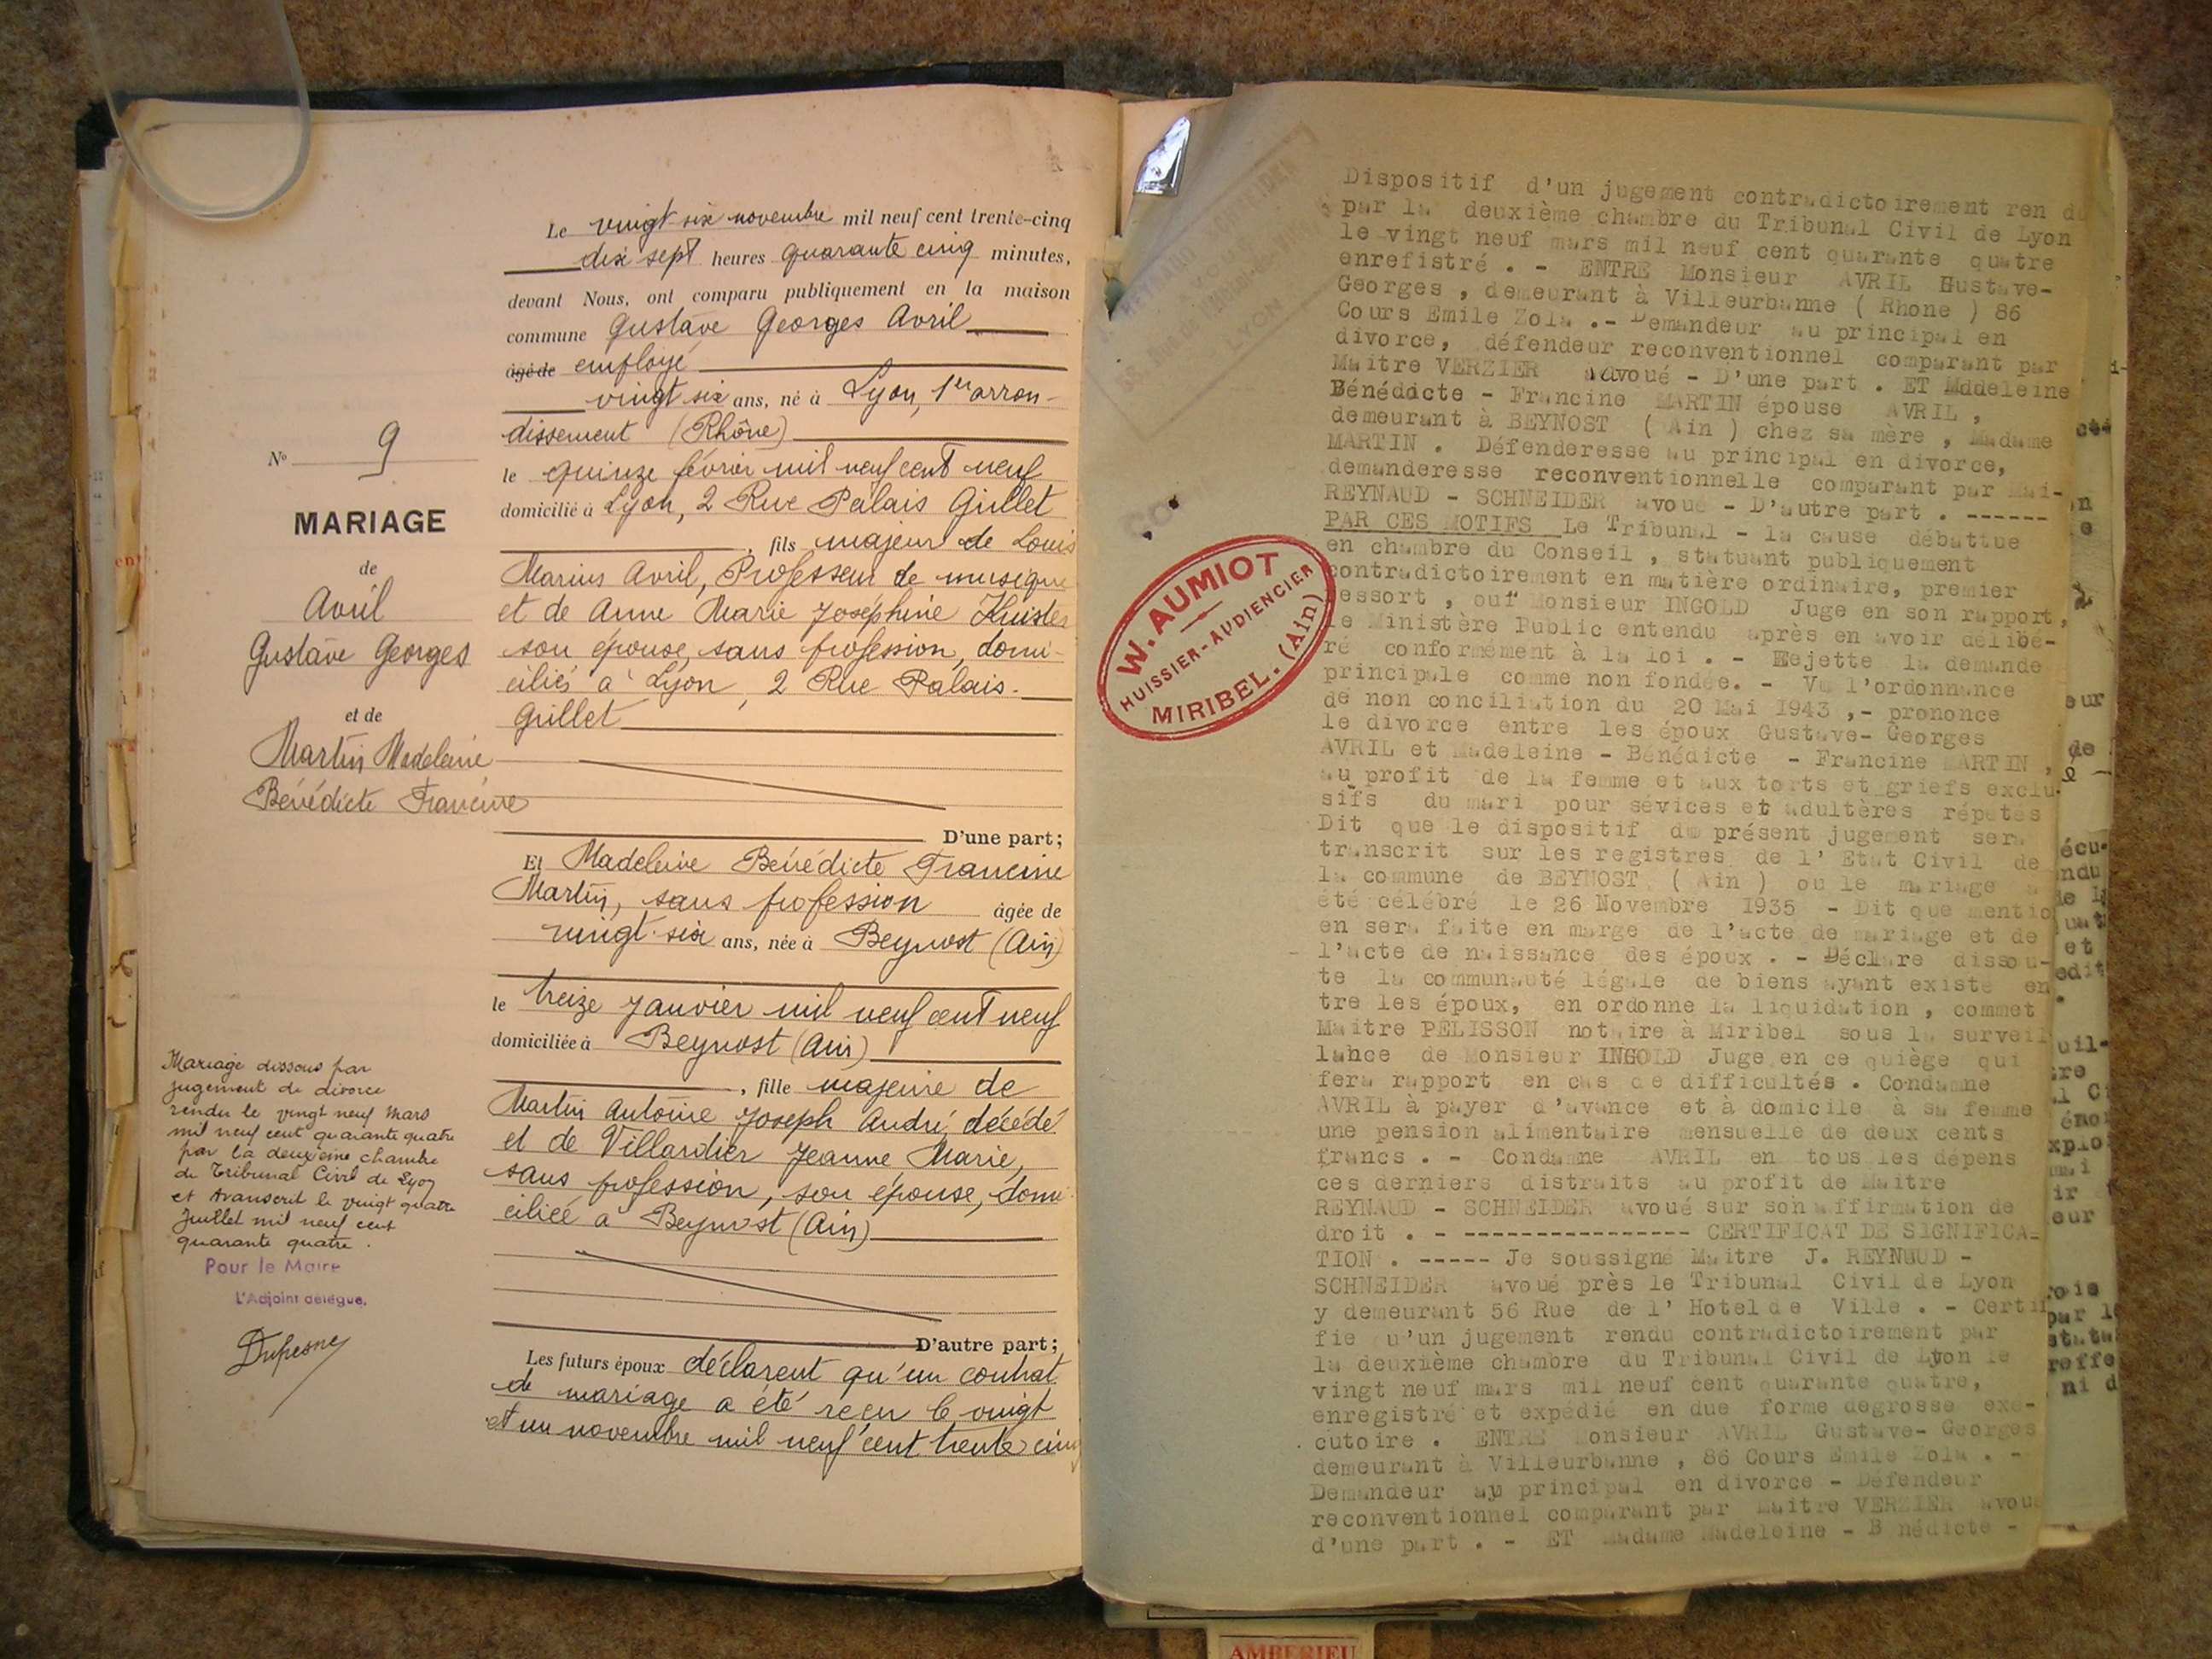 Le vingt six novembre mil neuf cent trente-cinq
dix sept heures quarante cinq minutes,
devant Nous, ont comparu publiquement en la maison
commune Gustave Georges Avril
âgé de employé
vingt six ans, né à Lyon, 1er arron-
dissement (Rhône)
le quinze février mil neuf cent neuf
domicilié à Lyon, 2 Rue Palais Grillet
, fils majeur de Louis
Marius Avril, Professeur de musique
et de Anne Marie Joséphine
son épouse, sans profession, domi-
ciliés à Lyon, 2 Rue Palais-
Grillet
D'une part;
Et Madeleine Bénédicte Francine
Martin, sans profession âgée de
vingt-six ans, née à Beynost (Ain)
le treize janvier mil neuf cent neuf
domiciliée à Beynost (Ain)
, fille majeure de
Martin Antoine Joseph André, décédé
et de Villardier Jeanne Marie,
sans profession, son épouse, domi-
ciliée à Beynost (Ain)
D'autre part;
Les futurs époux déclarent qu'un contrat
de mariage a été reçu le vingt
et un novembre mil neuf cent trente cinq
No 9
MARIAGE
de
Avril
Gustave Georges
et de
Martin Madeleine
Bénédicte Francine
Mariage dissous par
jugement de divorce
rendu le vingt neuf mars
mil neuf cent quarante quatre
par la deuxième chambre
du Tribunal Civil de Lyon
et transcrit le vingt quatre
Juillet mil neuf cent
quarante quatre.
Pour le Maire
L'Adjoint délégué,
W. AUMIOT
HUISSIER-AUDIENCIER
MIRIBEL. (Ain)
Dispositif d'un jugement contradictoirement ren du
par la deuxième chambre du Tribunal Civil de Lyon
le vingt neuf mars mil neuf cent quarante quatre
enrefistré . - ENTRE Monsieur AVRIL Gustave-
Georges , demeurant à Villeurbanne ( Rhone ) 86
Cours Emile Zola .- Demandeur au principal en
divorce, défendeur reconventionnel comparant par
Maitre VERZIER avoué - D'une part . ET Mddeleine
Bénédicte - Francine MARTIN épouse AVRIL ,
demeurant à BEYNOST ( Ain ) chez sa mère , Madame
MARTIN . Défenderesse au principal en divorce,
demanderesse reconventionnelle comparant par Mai-
REYNAUD - SCHNEIDER avoué - D'autre part . ------
PAR CES MOTIFS Le Tribunal - la cause débattue
en chambre du Conseil , statuant publiquement
contradictoirement en matière ordinaire, premier
ressort , ouï Monsieur INGOLD Juge en son rapport,
le Ministère Public entendu après en avoir délibé-
ré conformément à la loi . - Rejette la demande
principale comme non fondée. - Vu l'ordonnance
de non conciliation du 20 Mai 1943 ,- prononce
le divorce entre les époux Gustave- Georges
AVRIL et Madeleine - Bénédicte - Francine MARTIN ,
au profit de la femme et aux torts et griefs exclu-
sifs du mari pour sévices et adultères répetés
Dit que le dispositif du présent jugement sera
transcrit sur les registres de l' Etat Civil de
la commune de BEYNOST ( Ain ) ou le mariage a
été célébré le 26 Novembre 1935 - Dit que mentio
en sera faite en marge de l'acte de mariage et de
l'acte de naissance des époux . - Déclare dissou-
te la communauté légale de biens ayant existé en
tre les époux, en ordonne la liquidation , commet
Maitre PELISSON notaire à Miribel sous la surveil
lance de Monsieur INGOLD Juge en ce quiège qui
fera rapport en cas de difficultés . Condamne
AVRIL à payer d'avance et à domicile à sa femme
une pension alimentaire mensuelle de deux cents
francs . - Condamne AVRIL en tous les dépens
ces derniers distraits au profit de Maitre
REYNAUD - SCHNEIDER avoué sur son affirmation de
droit . - ---------------- CERTIFICAT DE SIGNIFICA-
TION . ----- Je soussigné Maitre J. REYNUUD -
SCHNEIDER avoué près le Tribunal Civil de Lyon
y demeurant 56 Rue de l' Hotel de Ville . - Certi
fie qu'un jugement rendu contradictoirement par
la deuxième chambre du Tribunal Civil de Lyon le
vingt neuf mars mil neuf cent quarante quatre,
enregistré et expédié en due forme degrosse exé-
cutoire . ENTRE Monsieur AVRIL Gustave- Georges
demeurant à Villeurbanne , 86 Cours Emile Zola . -
Demandeur au principal en divorce - Défendeur
reconventionnel comparant par Maitre VERZIER avoué
d'une part . - ET Madame Madeleine - Bénédicte -
AMBERIEU